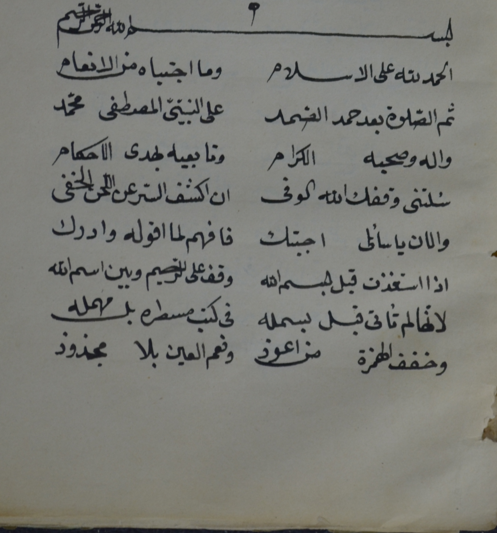 ٩
بسم الله الرحمن الرحيم
الحمد لله على الاسلام وما اجتباه من الانعام
ثم الصلوة بعد حمد الصمد على النبي المصطفى محمد
واله وصحبه الكرام وتابعيه لهدى الاحكام
سئلتنى وفقك الله الوفى ان اكشف الستر عن اللحن الخفى
والان يا سائلى اجبتك فافهم لما اقوله وادرك
اذا استعذت قبل بسم الله وقف على الرجيم وبين اسم الله
لانها لم تاتى قبل بسمله فى كتب مسطره بل مهمله
وخفف الهمزة من اعوذ ونعم العين بلا مجذوذ